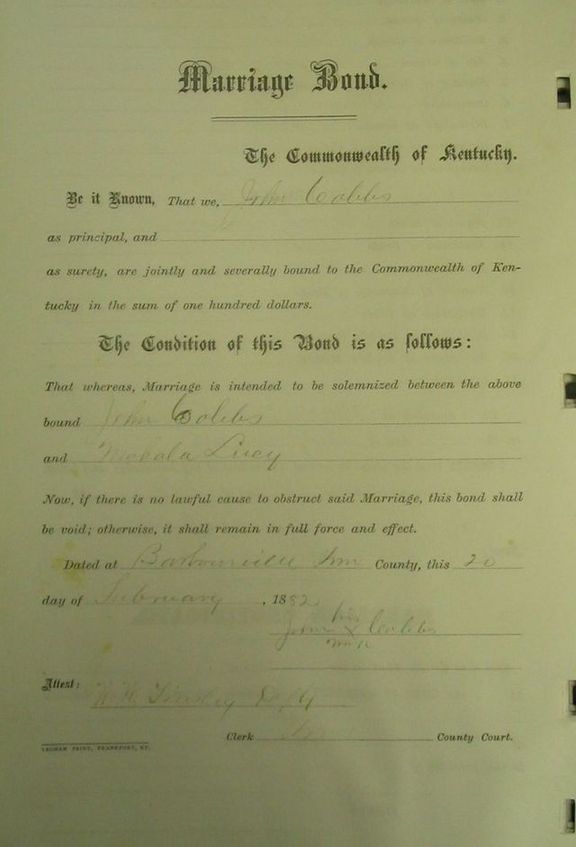 Marriage Bond.
The Commonwealth of Kentucky.
Be it Known, That we, John Cobbs
as principal, and
as surety, are jointly and severally bound to the Commonwealth of Ken-
tucky in the sum of one hundred dollars.
The Condition of this Bond is as follows:
That whereas, Marriage is intended to be solemnized between the above
bound John Cobbs
and Mahala Lucy
Now, if there is no lawful cause to obstruct said Marriage, this bond shall
be void; otherwise, it shall remain in full force and effect.
Dated at Barbourville County, this 20
day of February, 1882
his
John X Cobbs
mark
Attest:
Tinsley
Clerk County Court.
YEOMAN PRINT, FRANKFORT, KY.